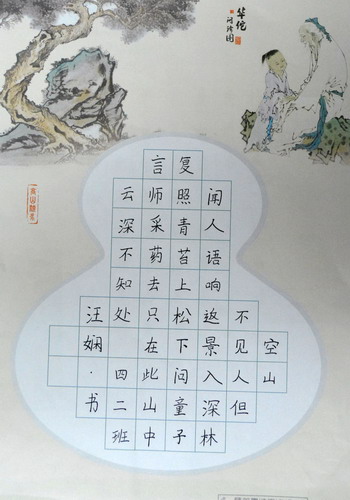 华佗
空山
不见人但
闻人语响返景入深林
复照青苔上松下问童子
言师采药去只在此山中
云深不知处 四二班
汪娴·书